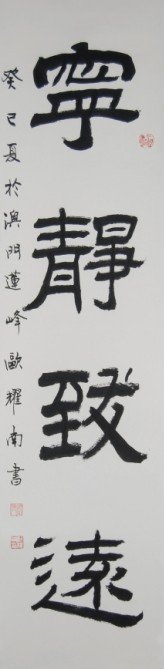 寧靜致遠
癸巳夏於澳門蓮峰歐耀南書